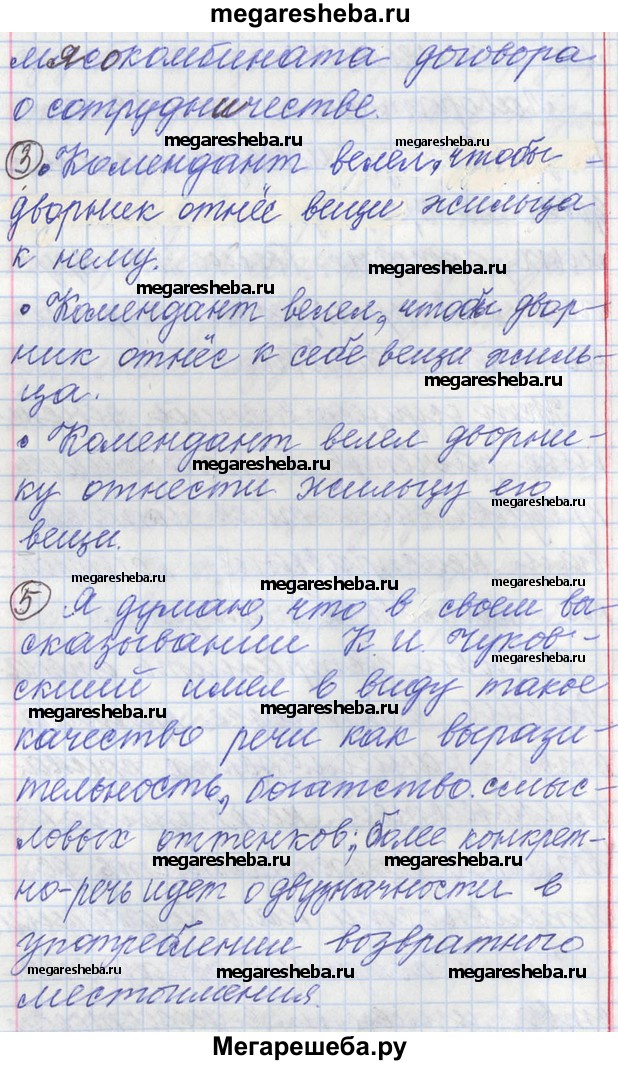 megaresheba.ru
мясокомбината договора
о сотрудничестве.
megaresheba.ru megaresheba.ru
3 • Комендант велел, чтобы
дворник отнёс вещи жильца
к нему.
megaresheba.ru
megaresheba.ru
• Комендант велел, чтобы двор-
ник отнёс к себе вещи жиль-
megaresheba.ru
ца.
• Комендант велел дворни-
megaresheba.ru
ку отнести жильцу его
megaresheba.ru
вещи.
megaresheba.ru megaresheba.ru megaresheba.ru
5 Я думаю, что в своем вы-
сказывании К. И. Чуков-
megaresheba.ru
ский имел в виду такое
megaresheba.ru megaresheba.ru
качество речи как вырази-
тельность, богатство смыс-
megaresheba.ru
ловых оттенков; более конкрет-
megaresheba.ru megaresheba.ru
но-речь идет о двузначности в
употреблении возвратного
megaresheba.ru megaresheba.ru megaresheba.ru
местоимения.
Мегарешеба.ру